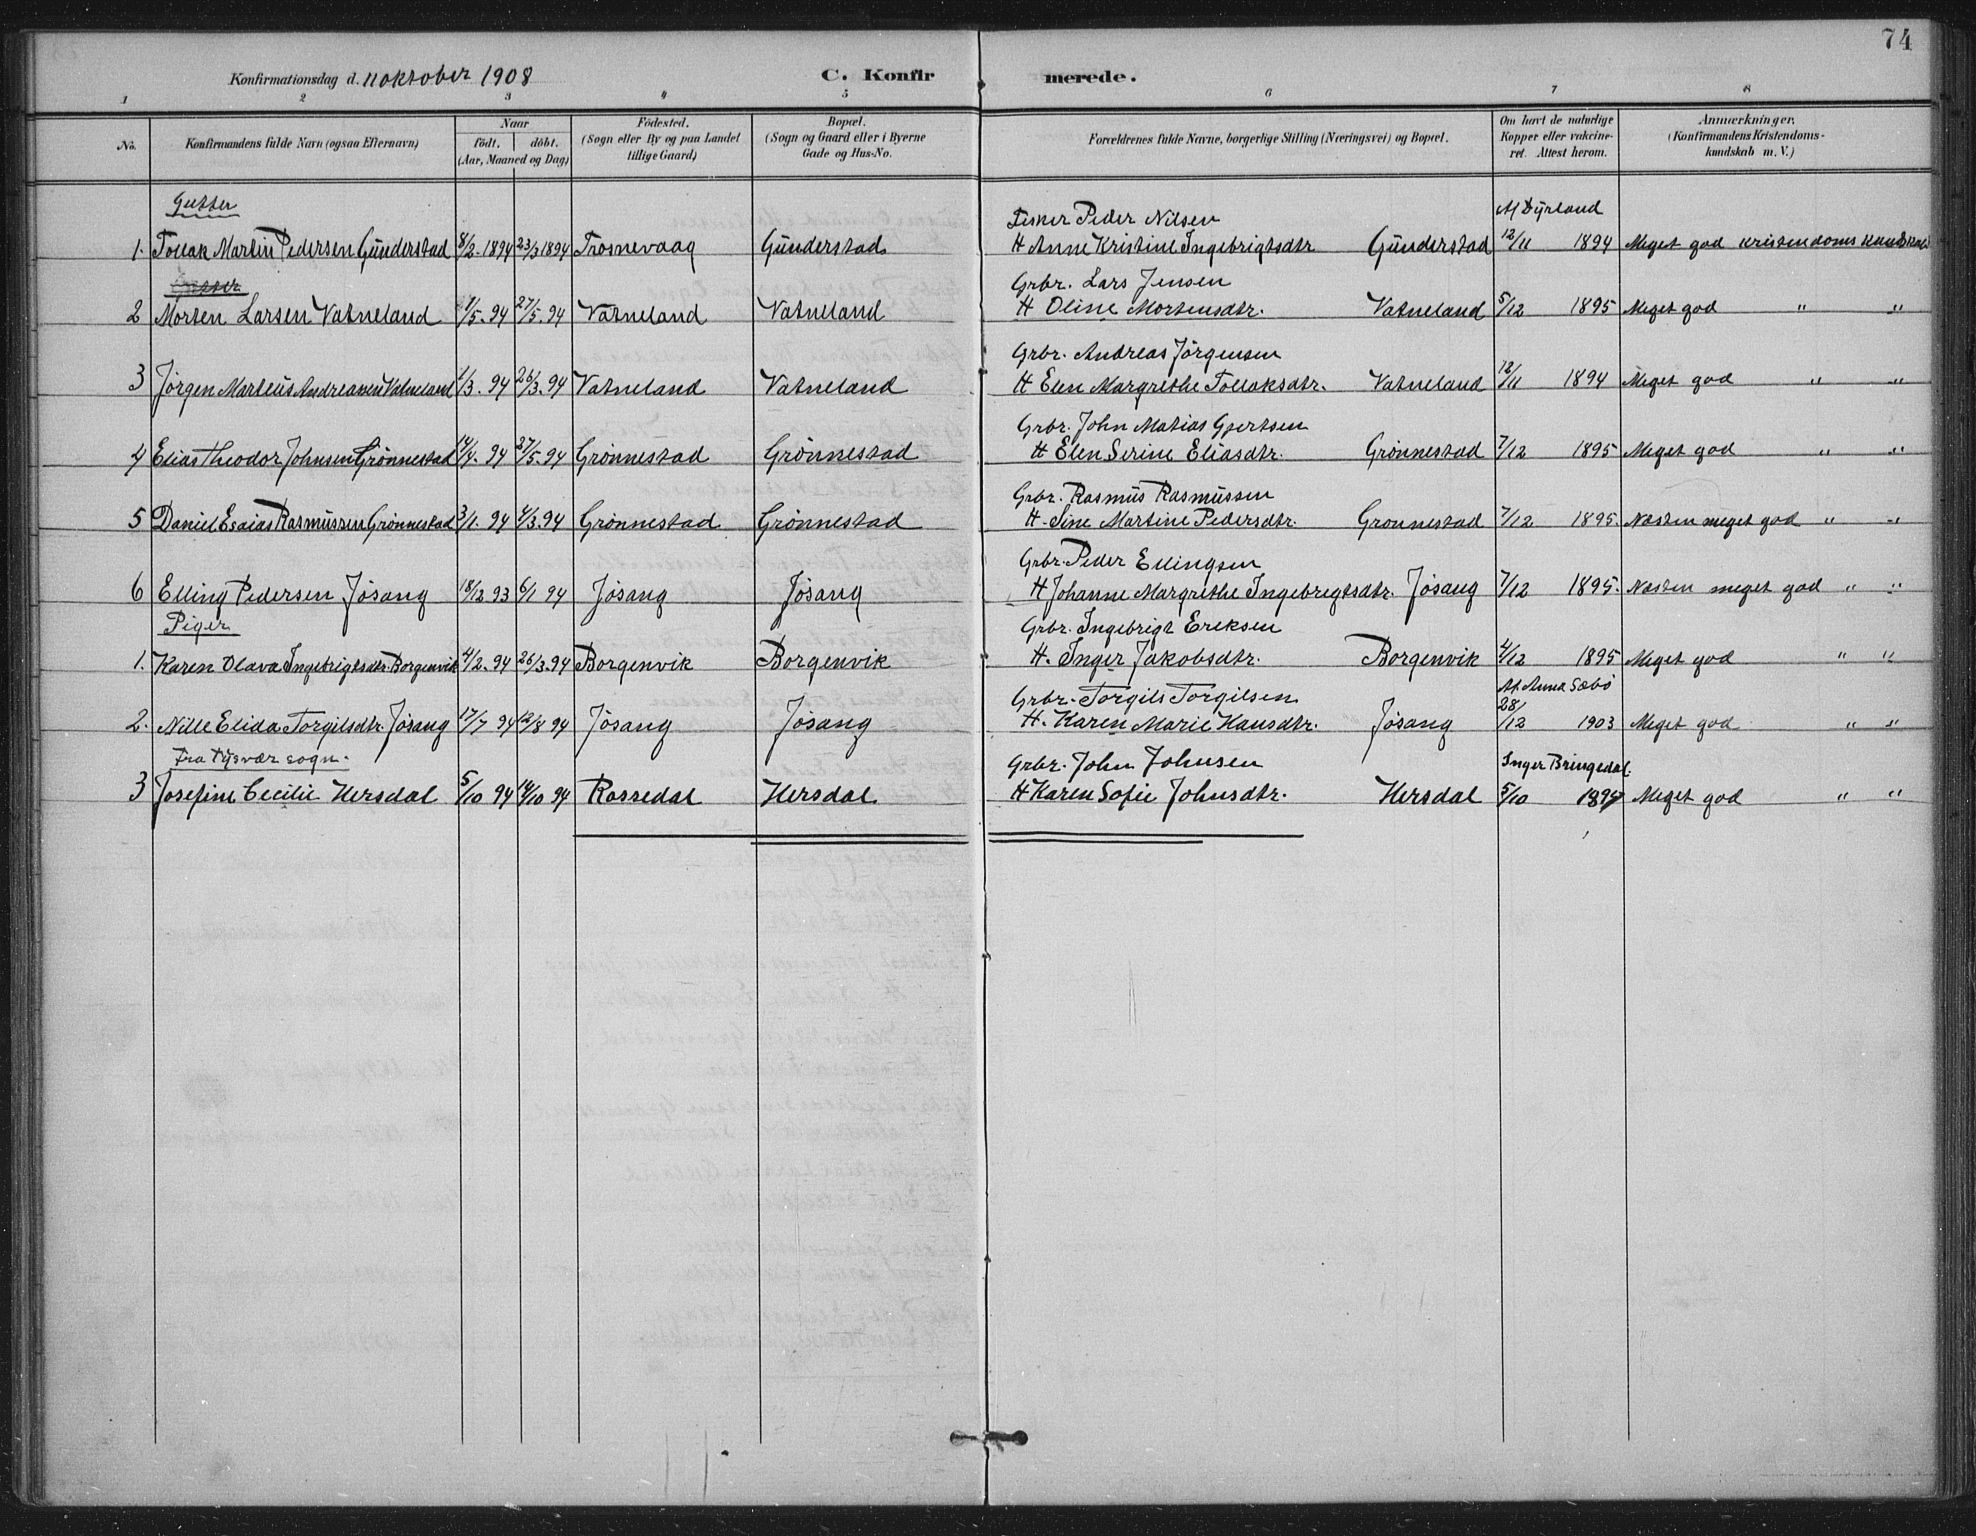 74
Konfirmationsdag d. 11 oktober 1908 C. Konfirmerede.
1 2 3 4 5 6 7 8
No. Konfirmandens fulde Navn (ogsaa Efternavn) Naar født. døbt. (Aar, Maaned og Dag) Fødested. (Sogn eller By og paa Landet tillige Gaard) Bopæl. (Sogn og Gaard eller i Byerne Gade og Hus-No. Forældrenes fulde Navne, borgerlige Stilling (Næringsvei) og Bopæl. Om havt de naturlige Kopper eller vakcineret. Attest herom. Anmærkninger. (Konfirmandens Kristendomskundskab m. V.)
Gutter
Fisker Peder Nilsen M Dyrland
1. Tollak Martin Pedersen Gunderstad 8/2 1894 23/3 1894 Trosnevaag Gunderstad H Anne Kristine Ingebrigtsdtr Gunderstad 12/11 1894 Meget god Kristendoms Kundskab
Gutter
Grbr. Lars Jensen
2 Morten Larsen Vatneland 1/5. 94 27/5. 94 Vatneland Vatneland H Oline Mortensdtr. Vatneland 5/12 1895 Meget god " "
Grbr. Andreas Jørgensen
3 Jørgen Martius Andreasen Vatneland 1/3. 94 26/3. 94 Vatneland Vatneland H Elen Margrethe Tollaksdtr. Vatneland 12/11 1894 Meget god " "
Grbr. John Matias Gjertsen
4 Elias Theodor Johnsen Grønnestad 14/4. 94 27/5. 94 Grønnestad Grønnestad H Elen Serine Eliasdtr. Grønnestad 7/12 1895 Meget god " "
Grbr. Rasmus Rasmussen
5 Daniel Esaias Rasmussen Grønnestad 3/1. 94 4/3. 94 Grønnestad Grønnestad H. Sine Martine Pedersdtr. Grønnestad 7/12 1895. Næsten meget god " "
Grbr. Peder Ellingsen
6 Elling Pedersen Jøsang 18/12 93 6/1 94 Jøsang Jøsang H Johanne Margrethe Ingebregtsdtr. Jøsang 7/12 1895. Næsten meget god " "
Piger
Grbr. Ingebrigt Eriksen
1. Karen Olava Ingebrigtsdtr. Borgenvik 4/2. 94 26/3. 94 Borgenvik Borgenvik H. Inger Jakobsdtr. Borgenvik 4/12 1895 Meget god " "
Grbr. Torgils Torgilsen At. Anna Sæbø
2. Nille Elida Torgilsdtr. Jøsang 17/7 94 12/8 94 Jøsang Jøsang H. Karen Marie Hansdtr. Jøsang 28/12 1903 Meget god " "
Fra Tysvær sogn.
Grbr. John Johnsen Inger Bringedal
3 Josefine Cecilie Hersdal 5/10 94 14/10 94 Rossedal Hersdal H Karen Sofie Johnsdtr. Hersdal 5/10 1897 Meget god " "